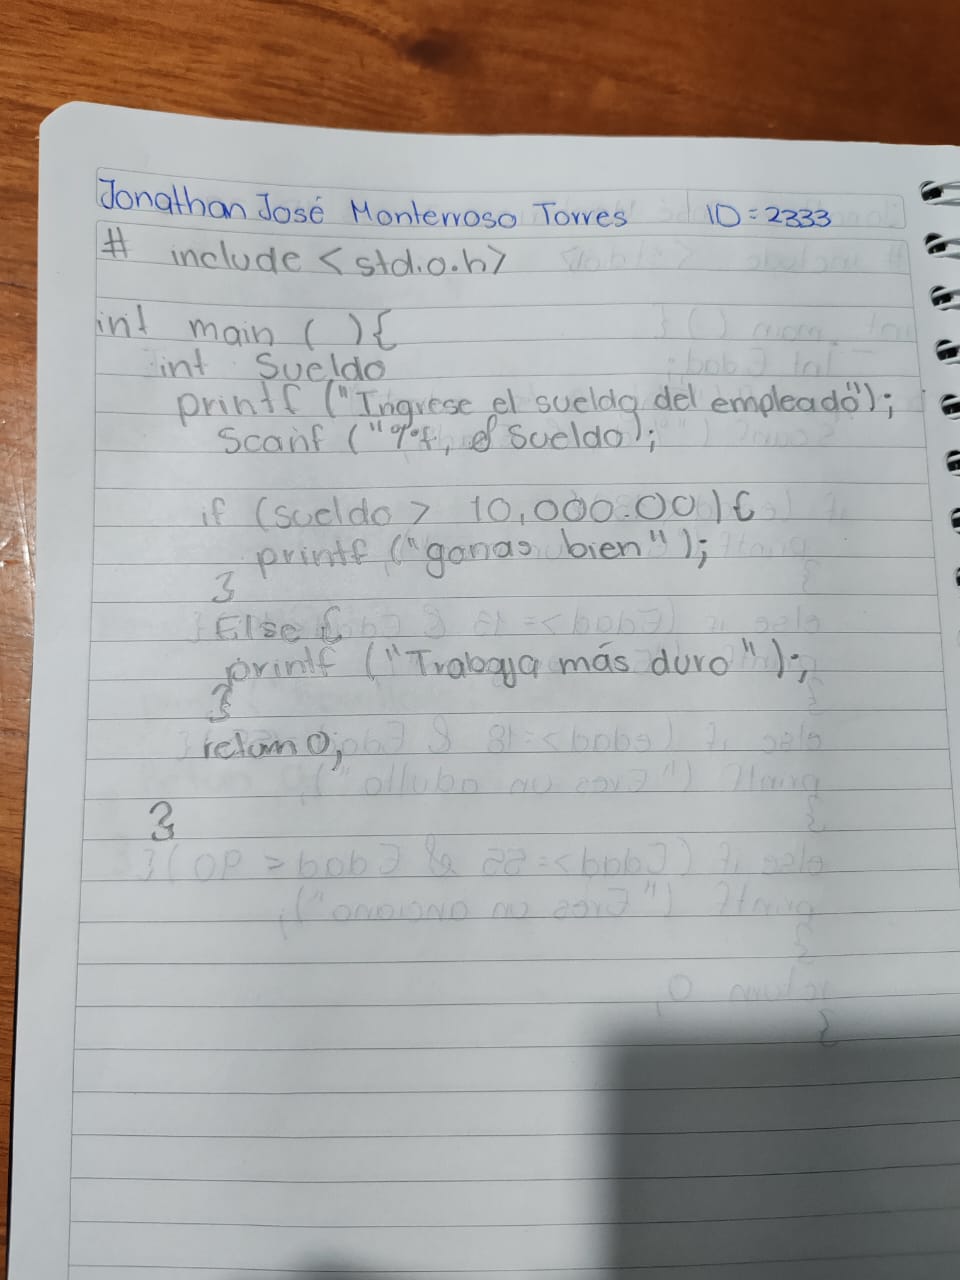 Jonathan José Monterroso Torres ID=2333
# include <std.o.h>
int main ( ){
int Sueldo
printf ("Ingrese el sueldo del empleado");
Scanf ("%f, & Sueldo);
if (sueldo > 10,000.00){
printf ("ganas bien");
}
Else {
printf ("Trabaja más duro");
}
return 0;
}